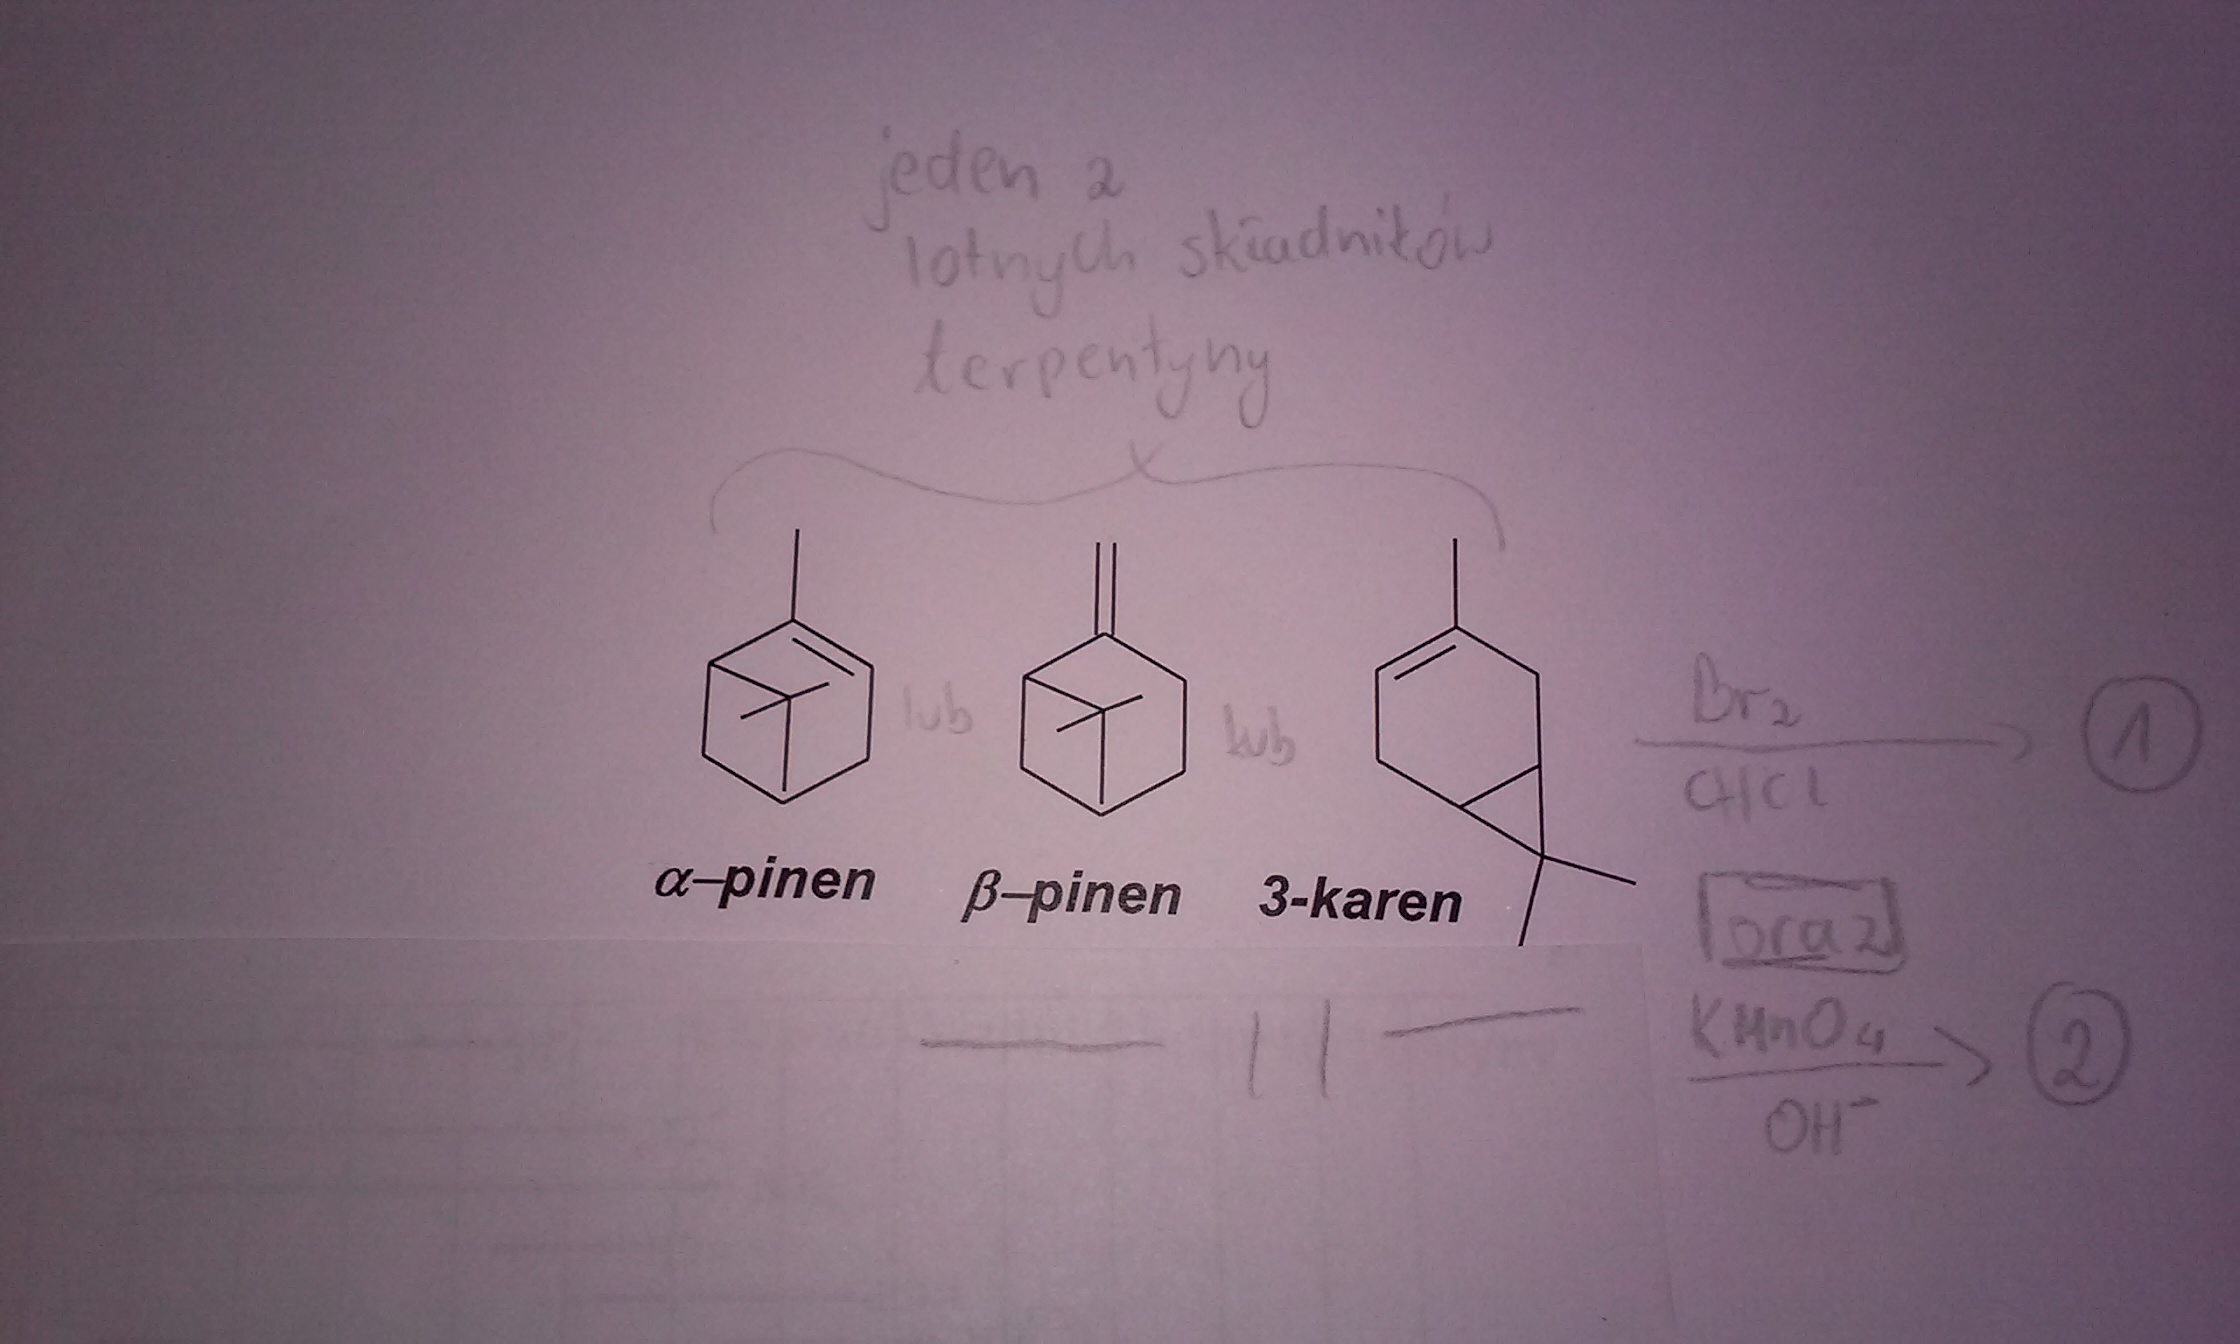 jeden z
lotnych składników
terpentyny
lub
lub
α-pinen
β-pinen
3-karen
Br2
CHCl
1
oraz
KMnO4
OH-
2
— || —